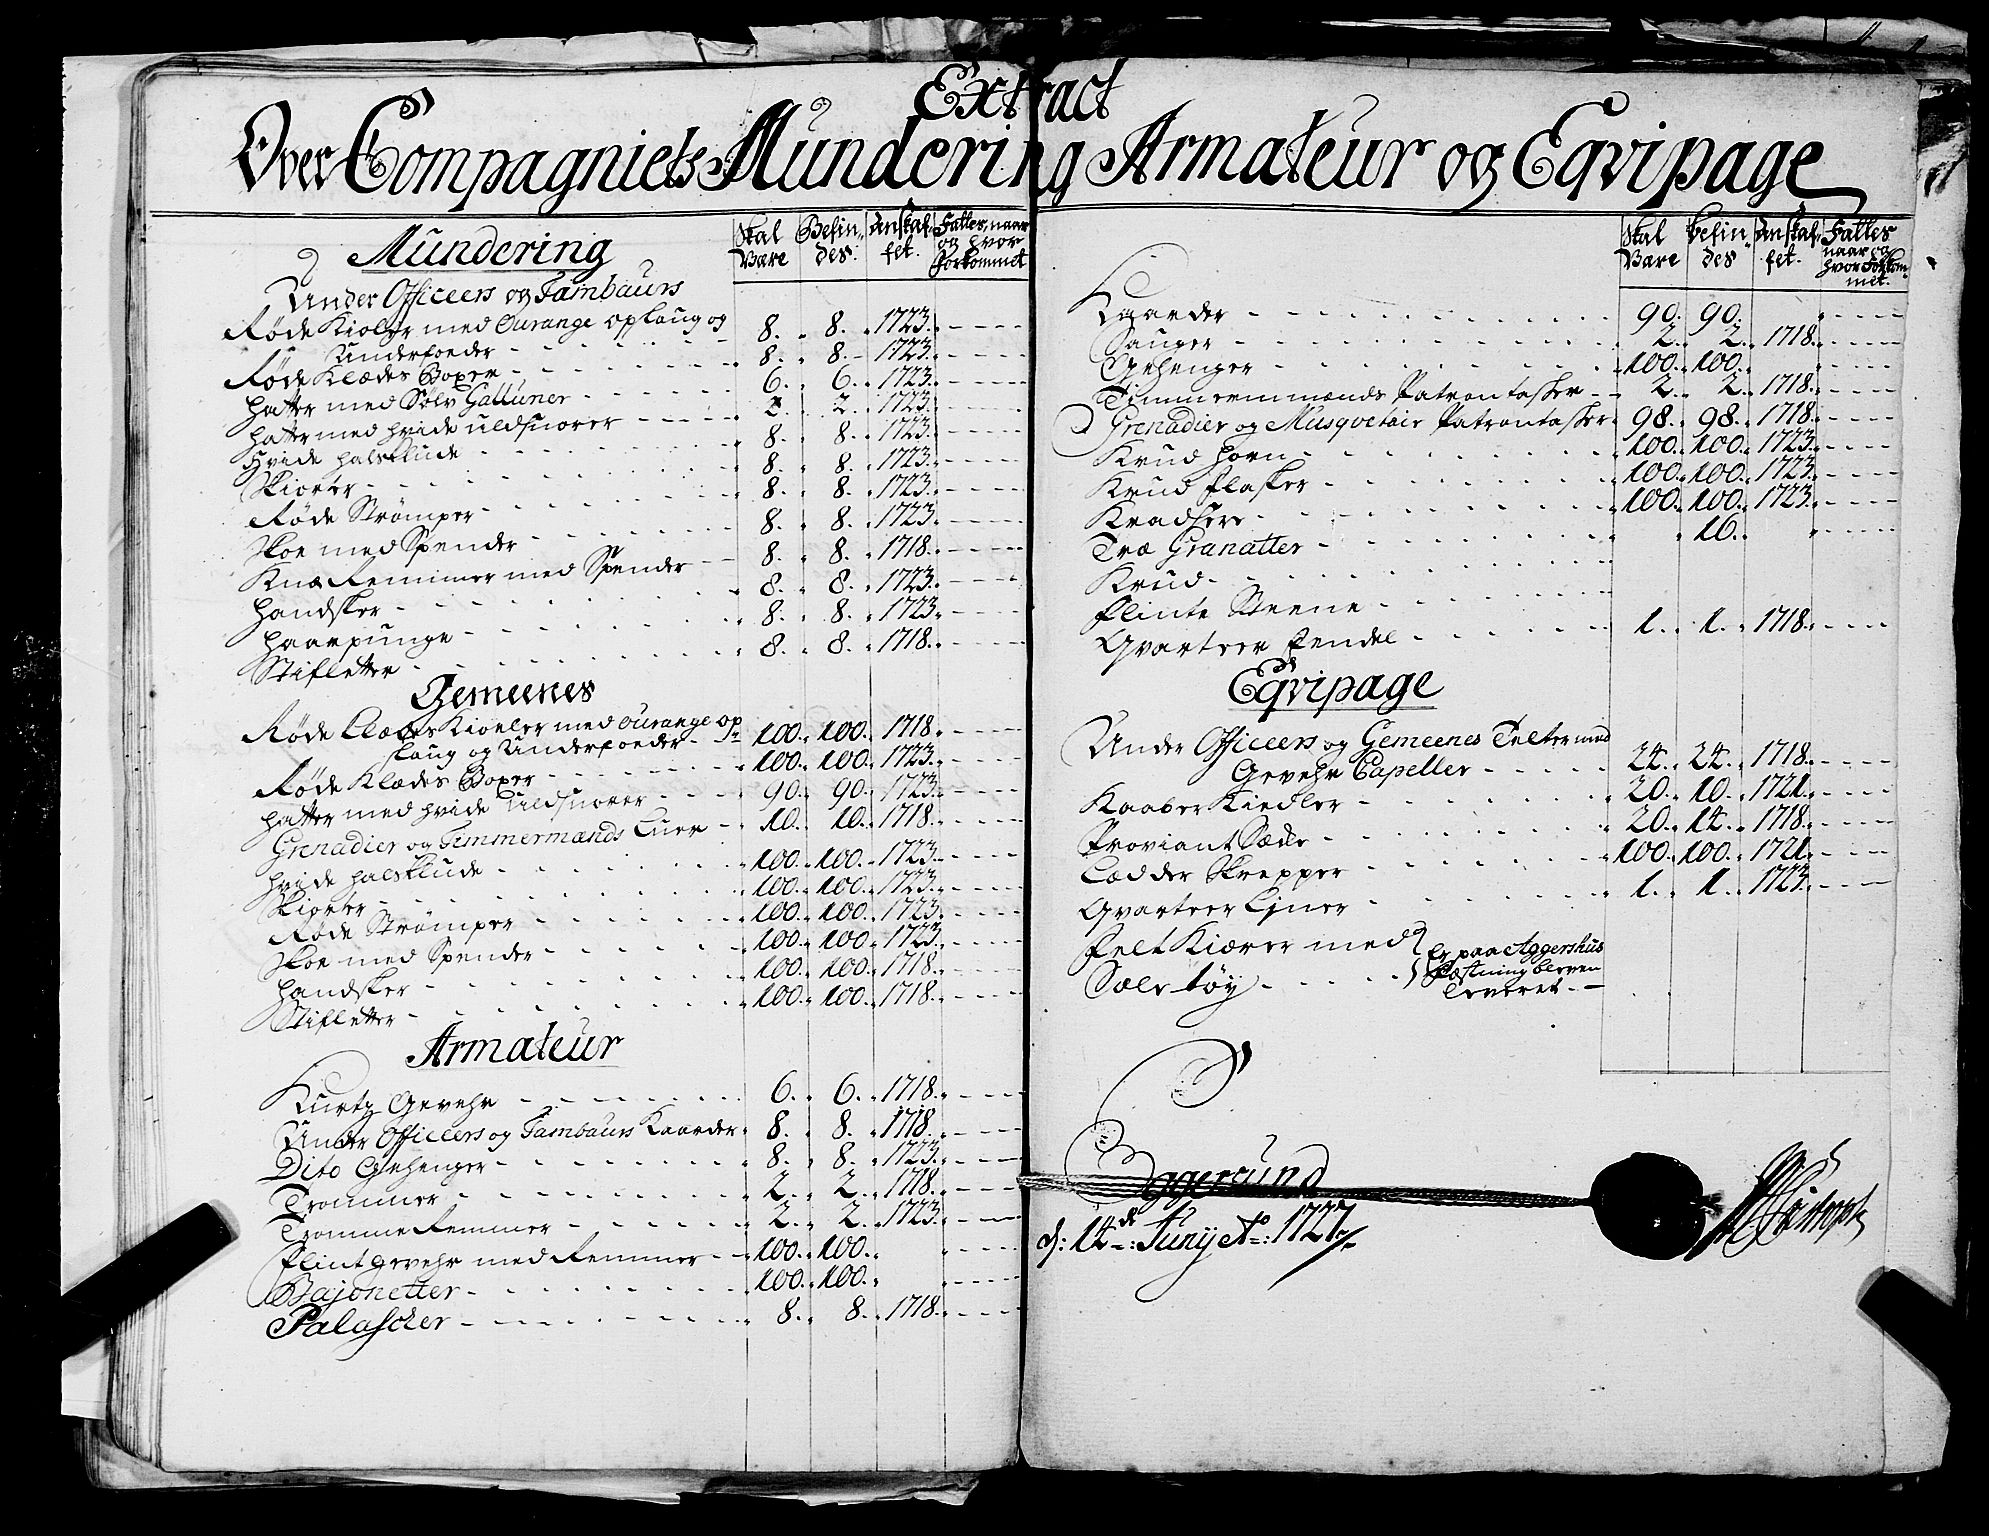 Extract
Over Compagniets Mundering Armateur og Eqvipage
Skal Være	Befindes	Anskaffet	Fattes, naar og hvor Forkommet
Mundering
Under Officeers og Tambours
Røde Kioler med Ourange opslaug og
Underfoeder - 8. 8. 1723.
Røde Klædes Boxer - 8. 8. 1723.
Hatter med Sølv Galluner - 6. 6. 1723.
Hatter med hvide uldsnorer - 2. 2. 1723.
Hvide Halsklude - 8. 8. 1723.
Skiorter - 8. 8. 1723.
Røde Strømper - 8. 8. 1723.
Skoe med Spender - 8. 8. 1723.
Knæ Remmer med Spender - 8. 8. 1718.
Handsker - 8. 8. 1723.
Haarpunge - 8. 8. 1723.
Stifletter - 8. 8. 1718.
Gemeenes
Røde Clædes Kioeler med ourange op
slaug og Underfoeder - 100. 100. 1718.
Røde Klædes Boxer - 100. 100. 1723.
Hatter med hvide Uldsnorer - 90. 90. 1723.
Grenadier og Timmermænds Luer - 10. 10. 1718.
Hvide Halsklude - 100. 100. 1723.
Skiorter - 100. 100. 1723.
Røde Strømper - 100. 100. 1723.
Skoe med Spender - 100. 100. 1723.
Handsker - 100. 100. 1718.
Stifletter - 100. 100. 1718.
Armateur
Kurtz Gevehr - 6. 6. 1718.
Under Officeers og Tambaurs Kaarder 8. 8. 1718.
Dito Gehenger - 8. 8. 1723.
Trommer - 2. 2. 1718.
Tromme Remmer - 2. 2. 1723.
Flintgevehr med Remmer - 100. 100.
Bajonetter - 100. 100.
Palascher - 8. 8. 1718.
Skal Være	Befindes	Anskaffet.	Fattes naar og hvor Forkommet.
Kaarder - 90. 90.
Sauger - 2. 2. 1718.
Gehenger - 100. 100.
Timmermænds Patrontasker - 2. 2. 1718.
Grenadier og Musqvetair Patrontasker 98. 98. 1718.
Krud Horn - 100. 100. 1723.
Krud Flasker - 100. 100. 1723.
Kradsere - 100. 100. 1723.
Træ Granatter - 16.
Krud -
Flinte Steene -
Qvarteer Fendel - 1. 1. 1718.
Eqvipage
Under Officeers og Gemeenes Telter med
Gevehr Capeller - 24. 24. 1718.
Kaaber Kiedler - 20. 10. 1721.
Proviant Sæde - 20. 14. 1718.
Lædder Skrepper - 100. 100. 1721.
Qvarteer Liner - 1. 1. 1723.
Felt Kiærer med
Sæletøy -
Er paa Aggershus
Fæstning bleven
leveret. -
Eggersund
d: 14de: Junÿ Ao: 1727